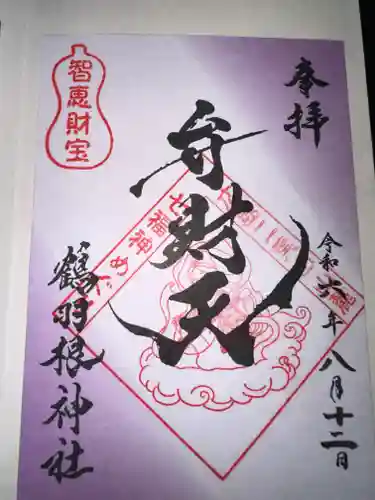 奉拝
令和六年八月十二日
弁財天
七福神めぐ
智恵財宝
鶴羽根神社